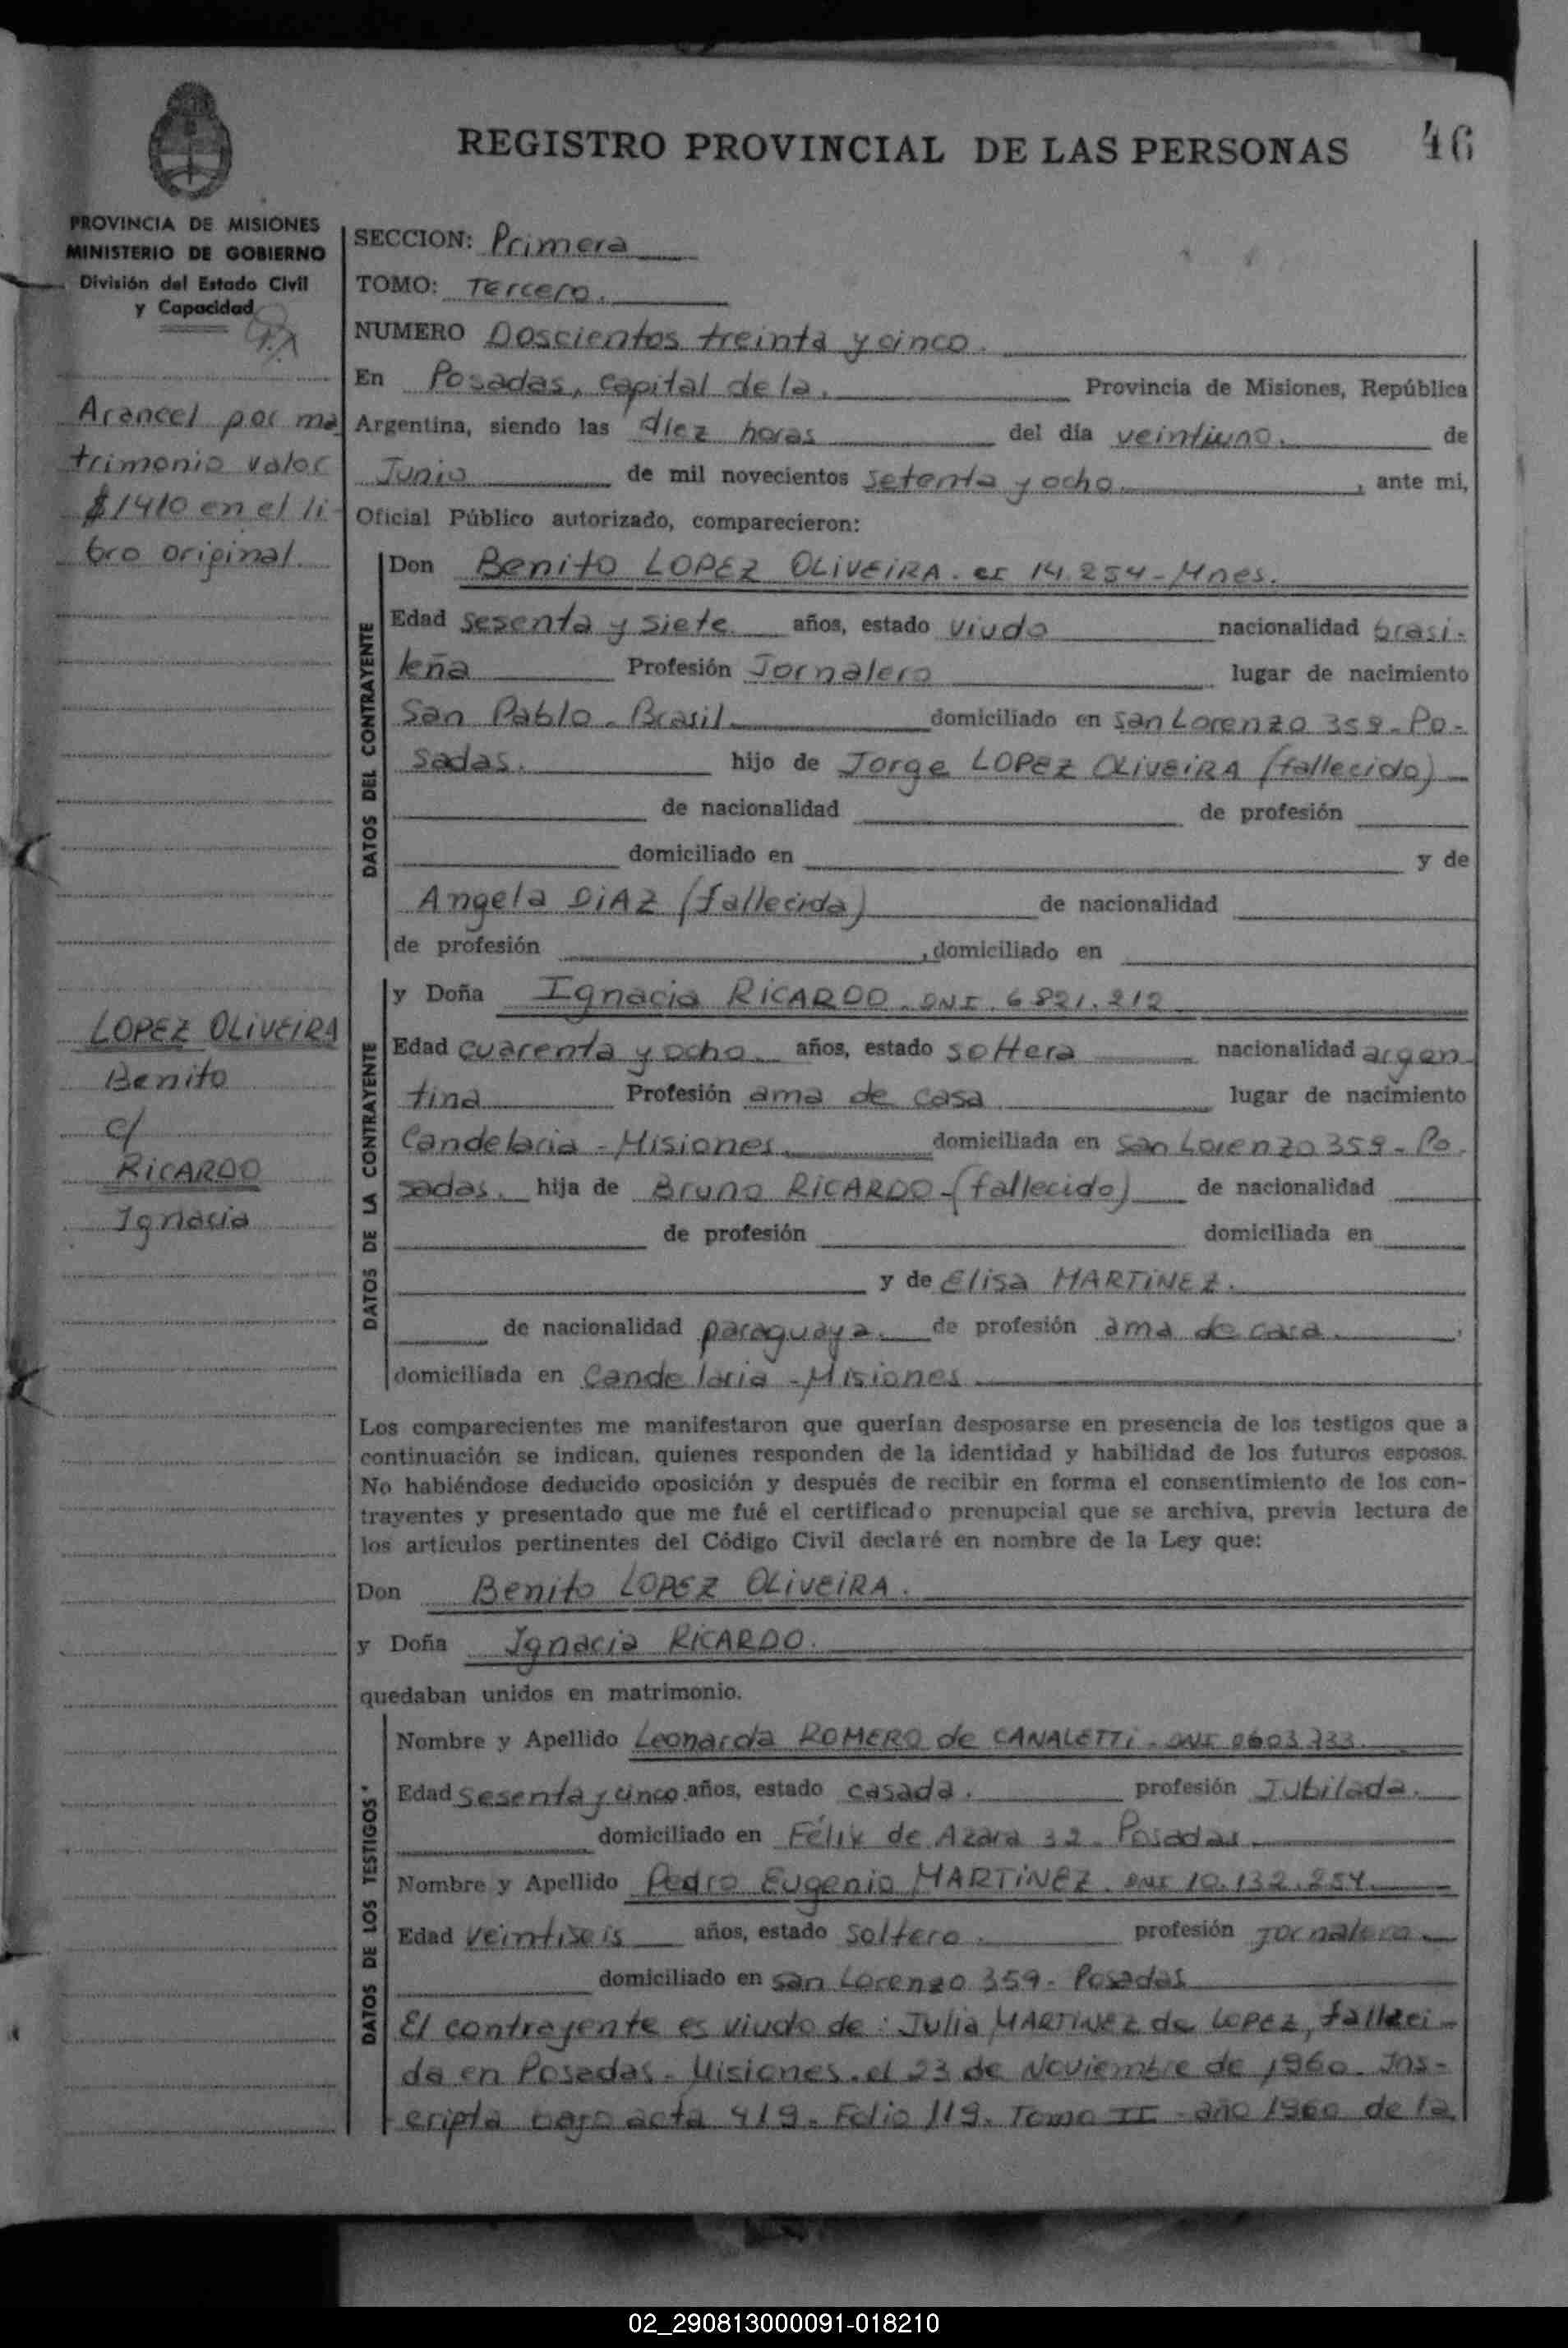 REGISTRO PROVINCIAL DE LAS PERSONAS 46
PROVINCIA DE MISIONES
MINISTERIO DE GOBIERNO
División del Estado Civil
y Capacidad
Arancel por ma
trimonio valor
$1410 en el li-
bro original.
LOPEZ OLIVEIRA
Benito
c/
RICARDO
Ignacia
SECCION: Primera
TOMO: Tercero.
NUMERO Doscientos treinta y cinco.
En Posadas, capital de la. Provincia de Misiones, República
Argentina, siendo las diez horas del día veintiuno. de
Junio de mil novecientos setenta y ocho , ante mi,
Oficial Público autorizado, comparecieron:
DATOS DEL CONTRAYENTE
Don Benito LOPEZ OLIVEIRA. CI 14.254-Mnes.
Edad sesenta y siete años, estado viudo nacionalidad brasi-
leña Profesión Jornalero lugar de nacimiento
San Pablo - Brasil. domiciliado en San Lorenzo 359 - Po-
sadas. hijo de Jorge LOPEZ OLIVEIRA (fallecido)
de nacionalidad de profesión
domiciliado en y de
Angela DIAZ (fallecida) de nacionalidad
de profesión , domiciliado en
DATOS DE LA CONTRAYENTE
y Doña Ignacia RICARDO. DNI. 6.821.212
Edad cuarenta y ocho años, estado soltera nacionalidad argen-
tina Profesión ama de casa lugar de nacimiento
Candelaria - Misiones. domiciliada en San Lorenzo 359 - Po.
sadas. hija de Bruno RICARDO - (fallecido) de nacionalidad
de profesión domiciliada en
y de Elisa MARTINEZ.
de nacionalidad paraguaya. de profesión ama de casa ,
domiciliada en Candelaria - Misiones
Los comparecientes me manifestaron que querían desposarse en presencia de los testigos que a
continuación se indican, quienes responden de la identidad y habilidad de los futuros esposos.
No habiéndose deducido oposición y después de recibir en forma el consentimiento de los con-
trayentes y presentado que me fué el certificado prenupcial que se archiva, previa lectura de
los artículos pertinentes del Código Civil declaré en nombre de la Ley que:
Don Benito LOPEZ OLIVEIRA.
y Doña Ignacia RICARDO.
quedaban unidos en matrimonio.
DATOS DE LOS TESTIGOS
Nombre y Apellido Leonarda ROMERO de CANALETTI - DNI
Edad sesenta y cinco años, estado casada. profesión Jubilada.
domiciliado en Félix de Azara 32 - Posadas
Nombre y Apellido Pedro Eugenio MARTINEZ. DNI 10.132.254
Edad veintiseis años, estado soltero. profesión Jornalero
domiciliado en San Lorenzo 359 - Posadas
El contrayente es viudo de: Julia MARTINEZ de LOPEZ, falleci-
da en Posadas - Misiones. el 23 de Noviembre de 1960. Ins-
cripta bajo acta 419 - Folio 119. Tomo II - año 1960 de la
02_290813000091-018210